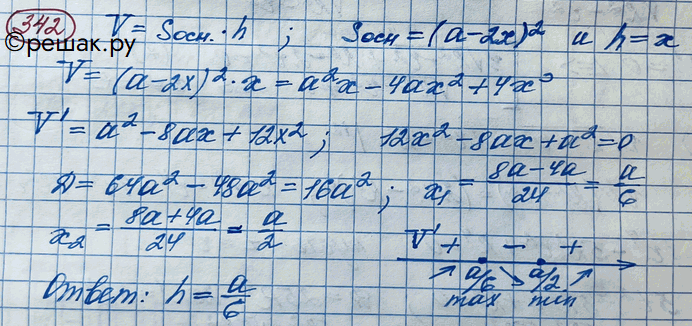 342 V = Sосн. · h ; Sосн = (a-2x)² и h = x
©решак.ру
V = (a-2x)² · x = a²x - 4ax² + 4x³
V' = a² - 8ax + 12x² ; 12x² - 8ax + a² = 0
D = 64a² - 48a² = 16a² ; x₁ = (8a-4a)/24 = a/6
x₂ = (8a+4a)/24 = a/2
V' + - +
a/6 a/2
max min
Ответ: h = a/6